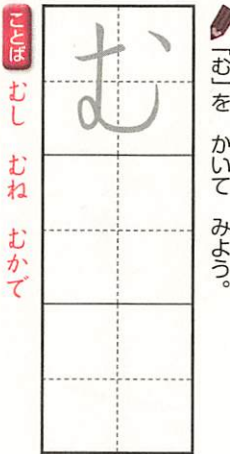 「む」を　かいて　みよう。
む
ことば
むし　むね　むかで